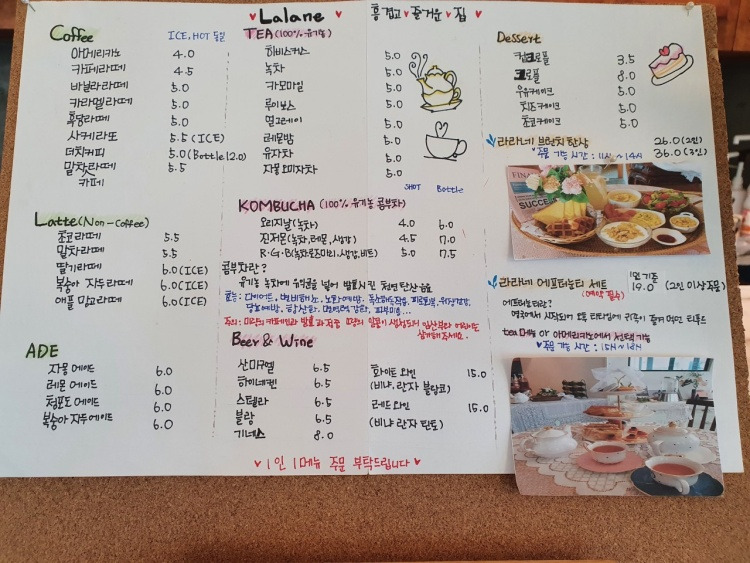 ♥ Lalane ♥ 흥겹고 ♥ 즐거운 ♥ 집 ♥
Coffee ICE, HOT 동일
아메리카노 4.0
카페라떼 4.5
바닐라라떼 5.0
카라멜라떼 5.0
흑당라떼 5.0
사케라또 5.5 (ICE)
더치커피 5.0 (Bottle 12.0)
말차라떼 5.5
카페
Latte (Non-Coffee)
초코라떼 5.5
말차라떼 5.5
딸기라떼 6.0 (ICE)
복숭아 자두라떼 6.0 (ICE)
애플 망고라떼 6.0 (ICE)
ADE
자몽에이드 6.0
레몬에이드 6.0
청포도에이드 6.0
복숭아 자두에이드 6.0
TEA (100% 유기농)
히비스커스 5.0
녹차 5.0
카모마일 5.0
루이보스 5.0
얼그레이 5.0
레몬밤 5.0
유자차 5.0
자몽 오미자차 5.0
SHOT Bottle
KOMBUCHA (100% 유기농 콤부차)
오리지날 (녹차) 4.0 6.0
진저몬 (녹차, 레몬, 생강) 4.5 7.0
R·G·B (녹차, 로즈마리, 생강, 비트) 5.0 7.5
콤부차란?
유기농 녹차에 유익균을 넣어 발효시킨 천연 탄산음료
효능: 다이어트, 변비해소, 노화예방, 독소해독작용, 피로회복, 위장건강,
당뇨예방, 항산화, 면역력 강화, 피부미용...
주의: 미량의 카페인과 발효과정중 미량의 알콜이 생성되기
삼가해주세요.
Beer & Wine
산미구엘 6.5
하이네켄 6.5
스텔라 6.5
블랑 6.5
기네스 8.0
화이트 와인 15.0
(비냐, 란자 블랑코)
레드와인 15.0
(비냐 란자 틴토)
♥ 1인 1메뉴 주문 부탁드립니다 ♥
Dessert
컵크로플 3.5
크로플 8.0
우유케이크 5.0
치즈케이크 5.0
초코케이크 5.0
라라네 브런치 한상 26.0 (2인)
♥ 주문 가능 시간 : 11시 ~ 14시 36.0 (3인)
FINAN
SUCCE
라라네 에프터눈티 세트 1인 기준
(예약 필수) 19.0 (2인 이상 주문)
에프터눈티란?
영국에서 시작되어 오후 티타임에 귀족이 즐겨 먹던 티푸드
tea 메뉴 or 아메리카노에서 선택 가능
♥ 주문 가능 시간 : 15시 ~ 18시